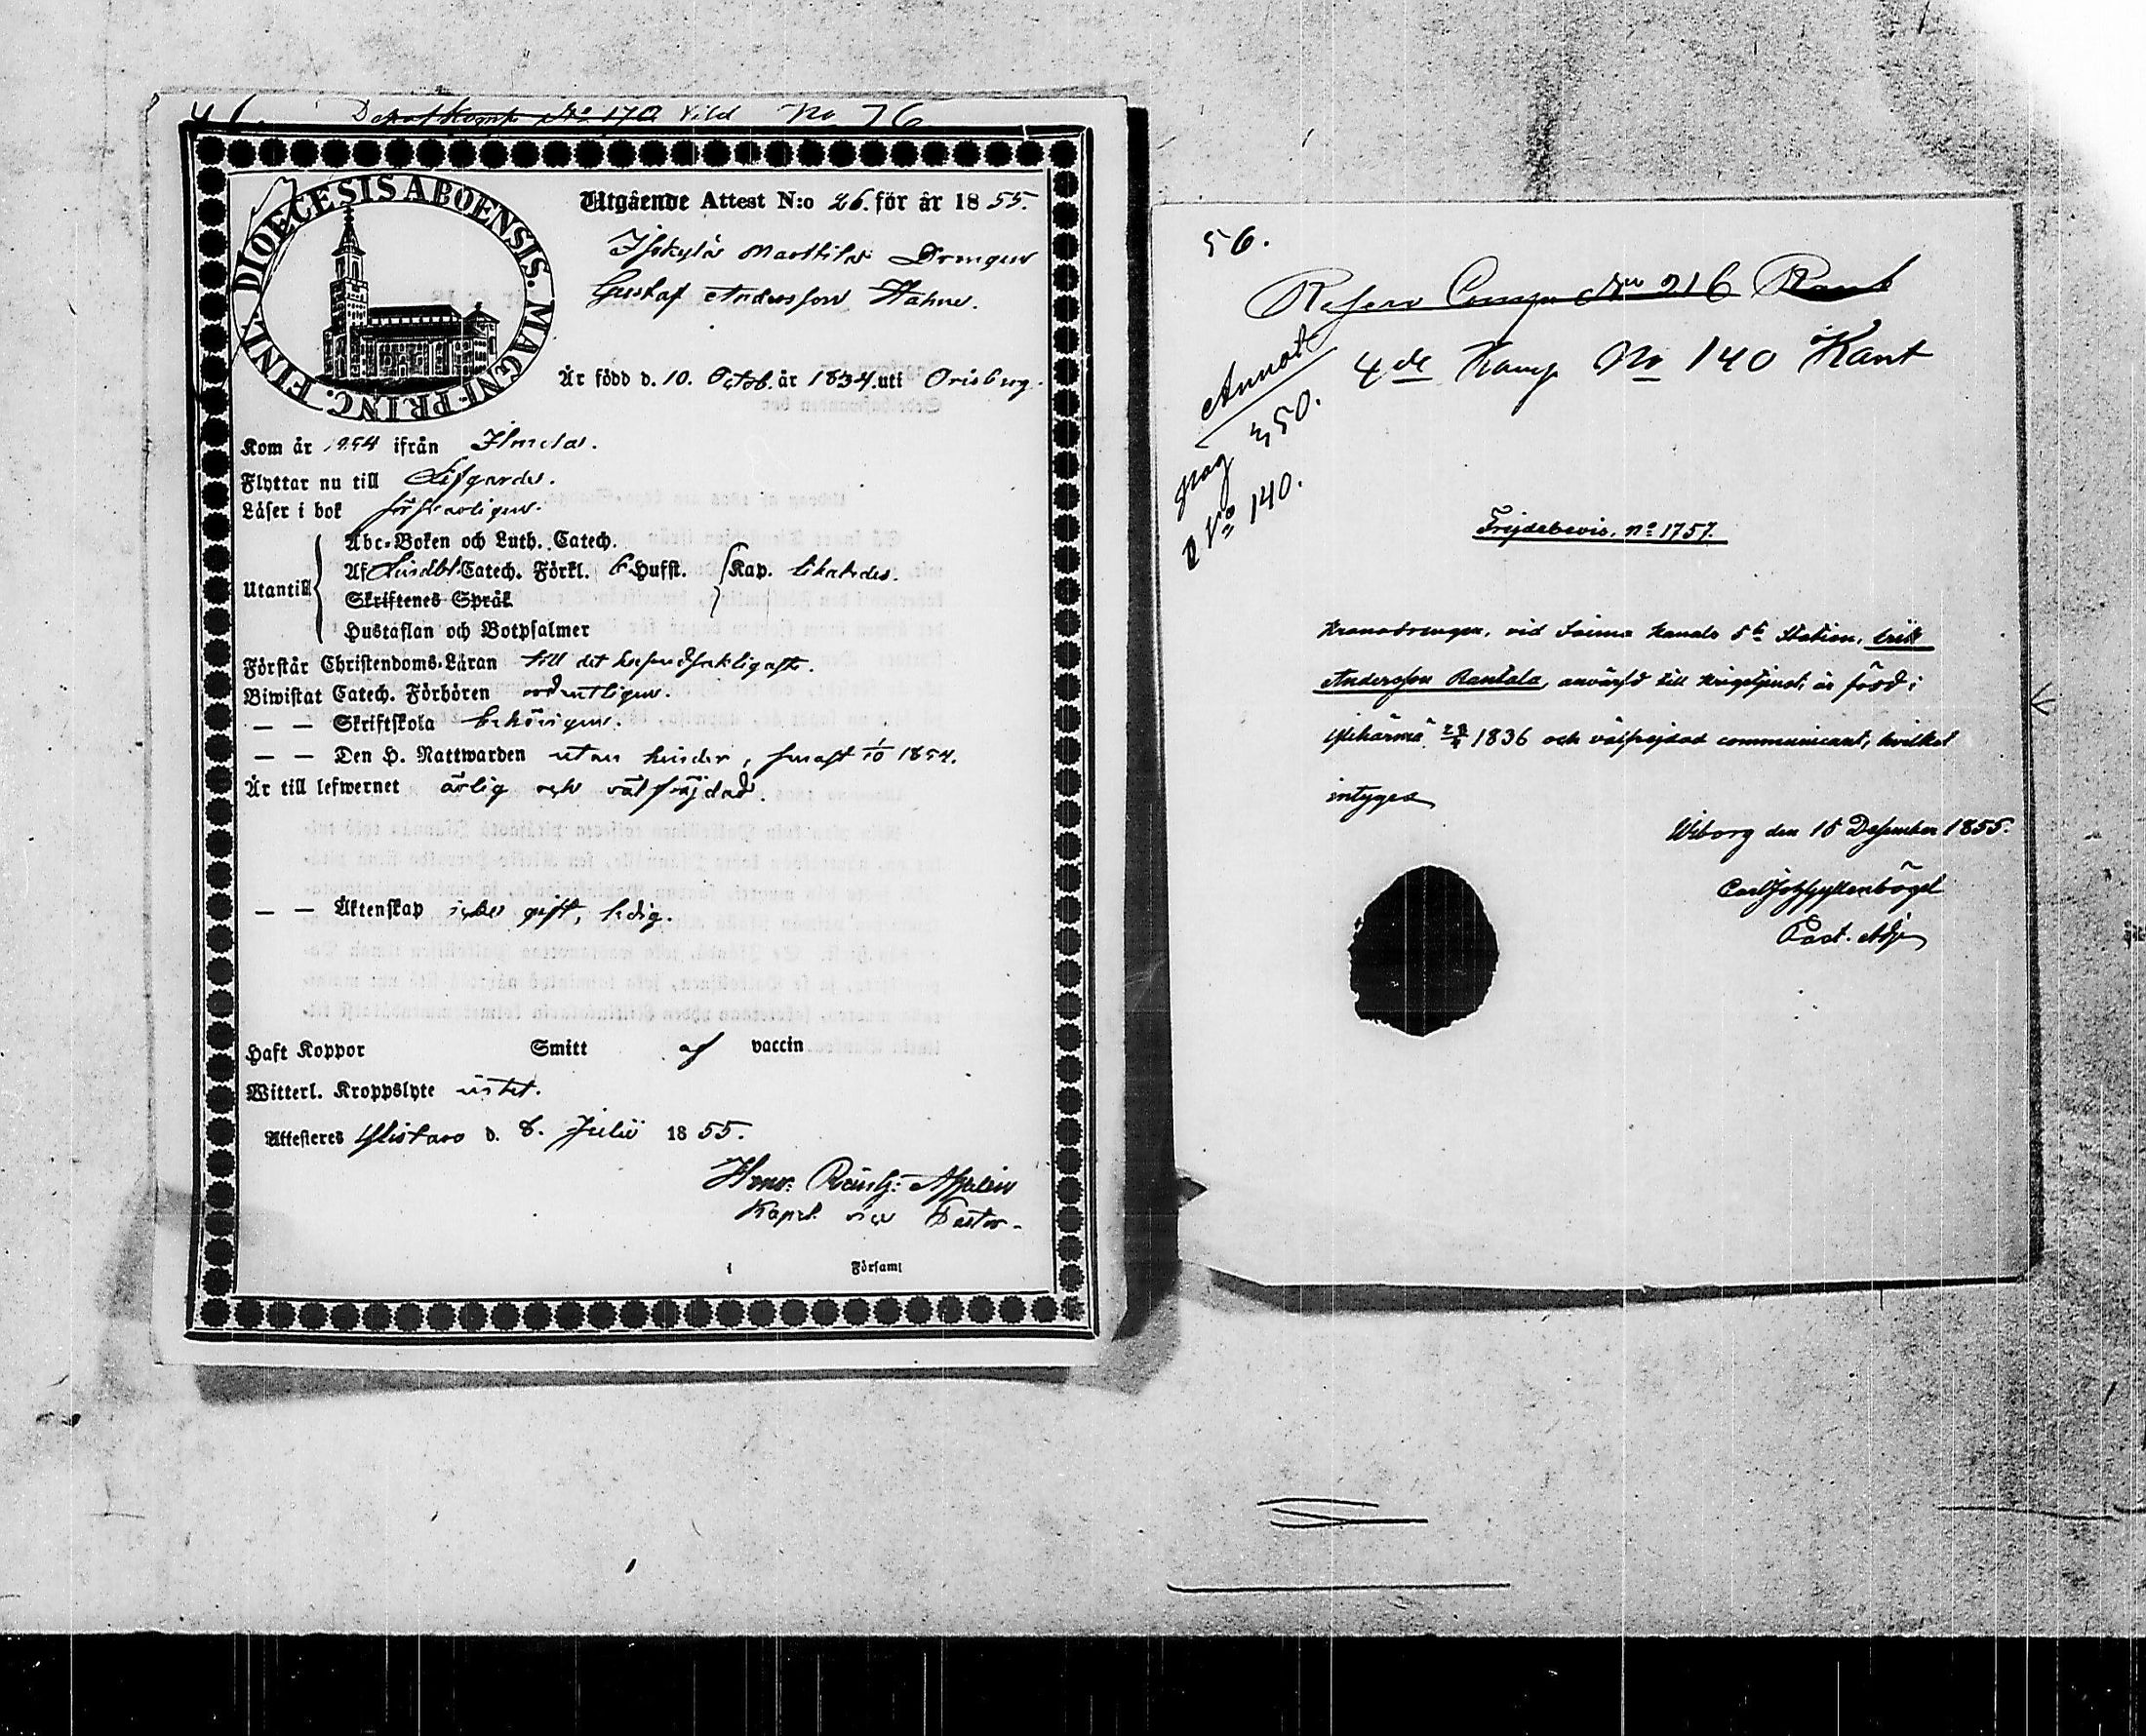 46. Depot Komp. No 170 Vild No 76
DIOECESIS ABOENSIS. MAGNI PRINC. FINL.
Utgående Attest N:o 26. för år 1855.
Drengen
Gustaf Andersson Hahne.
Är född d. 10. Octob. år 1834. uti Orisberg.
Kom år 1854 ifrån Ilmola.
Flyttar nu till
Läser i bok försvarligen.
Abc-Boken och Luth. Catech.
Utantill Af Catech. Förkl. 6 Hufst. Kap.
Skriftenes Språk
Hustaflan och Botpsalmer
Förstår Christendoms-Läran till det
Biwistat Catech. Förhören ordentligen.
— — Skriftskola behörigen.
— — Den H. Nattwarden utan hinder, senast 1/10 1854.
Är till lefwernet ärlig och välfräjdad.
— — Äktenskap icke gift, ledig.
Haft Koppor Smitt af vaccin
Witterl. Kroppslyte intet.
Attesteres Ylistaro d. 8. Julii 1855.
Kapel. vice Pastor.
i Församl
56.
Reserv Comp. No 216 Rant
4de Komp No 140 Kant
Annot
pag 350.
No 140.
Frejdebevis, No 1757.
Kronodrengen, vid Saima Kanals 5te Station, Erik
Andersson Rantala, anvärfd till krigstjenst, är född i
Ylihärmä 1836 och välfrejdad communicant, hvilket
intygas
Wiborg den 18 December 1855.
Gyllenbögel
Past. Adj.